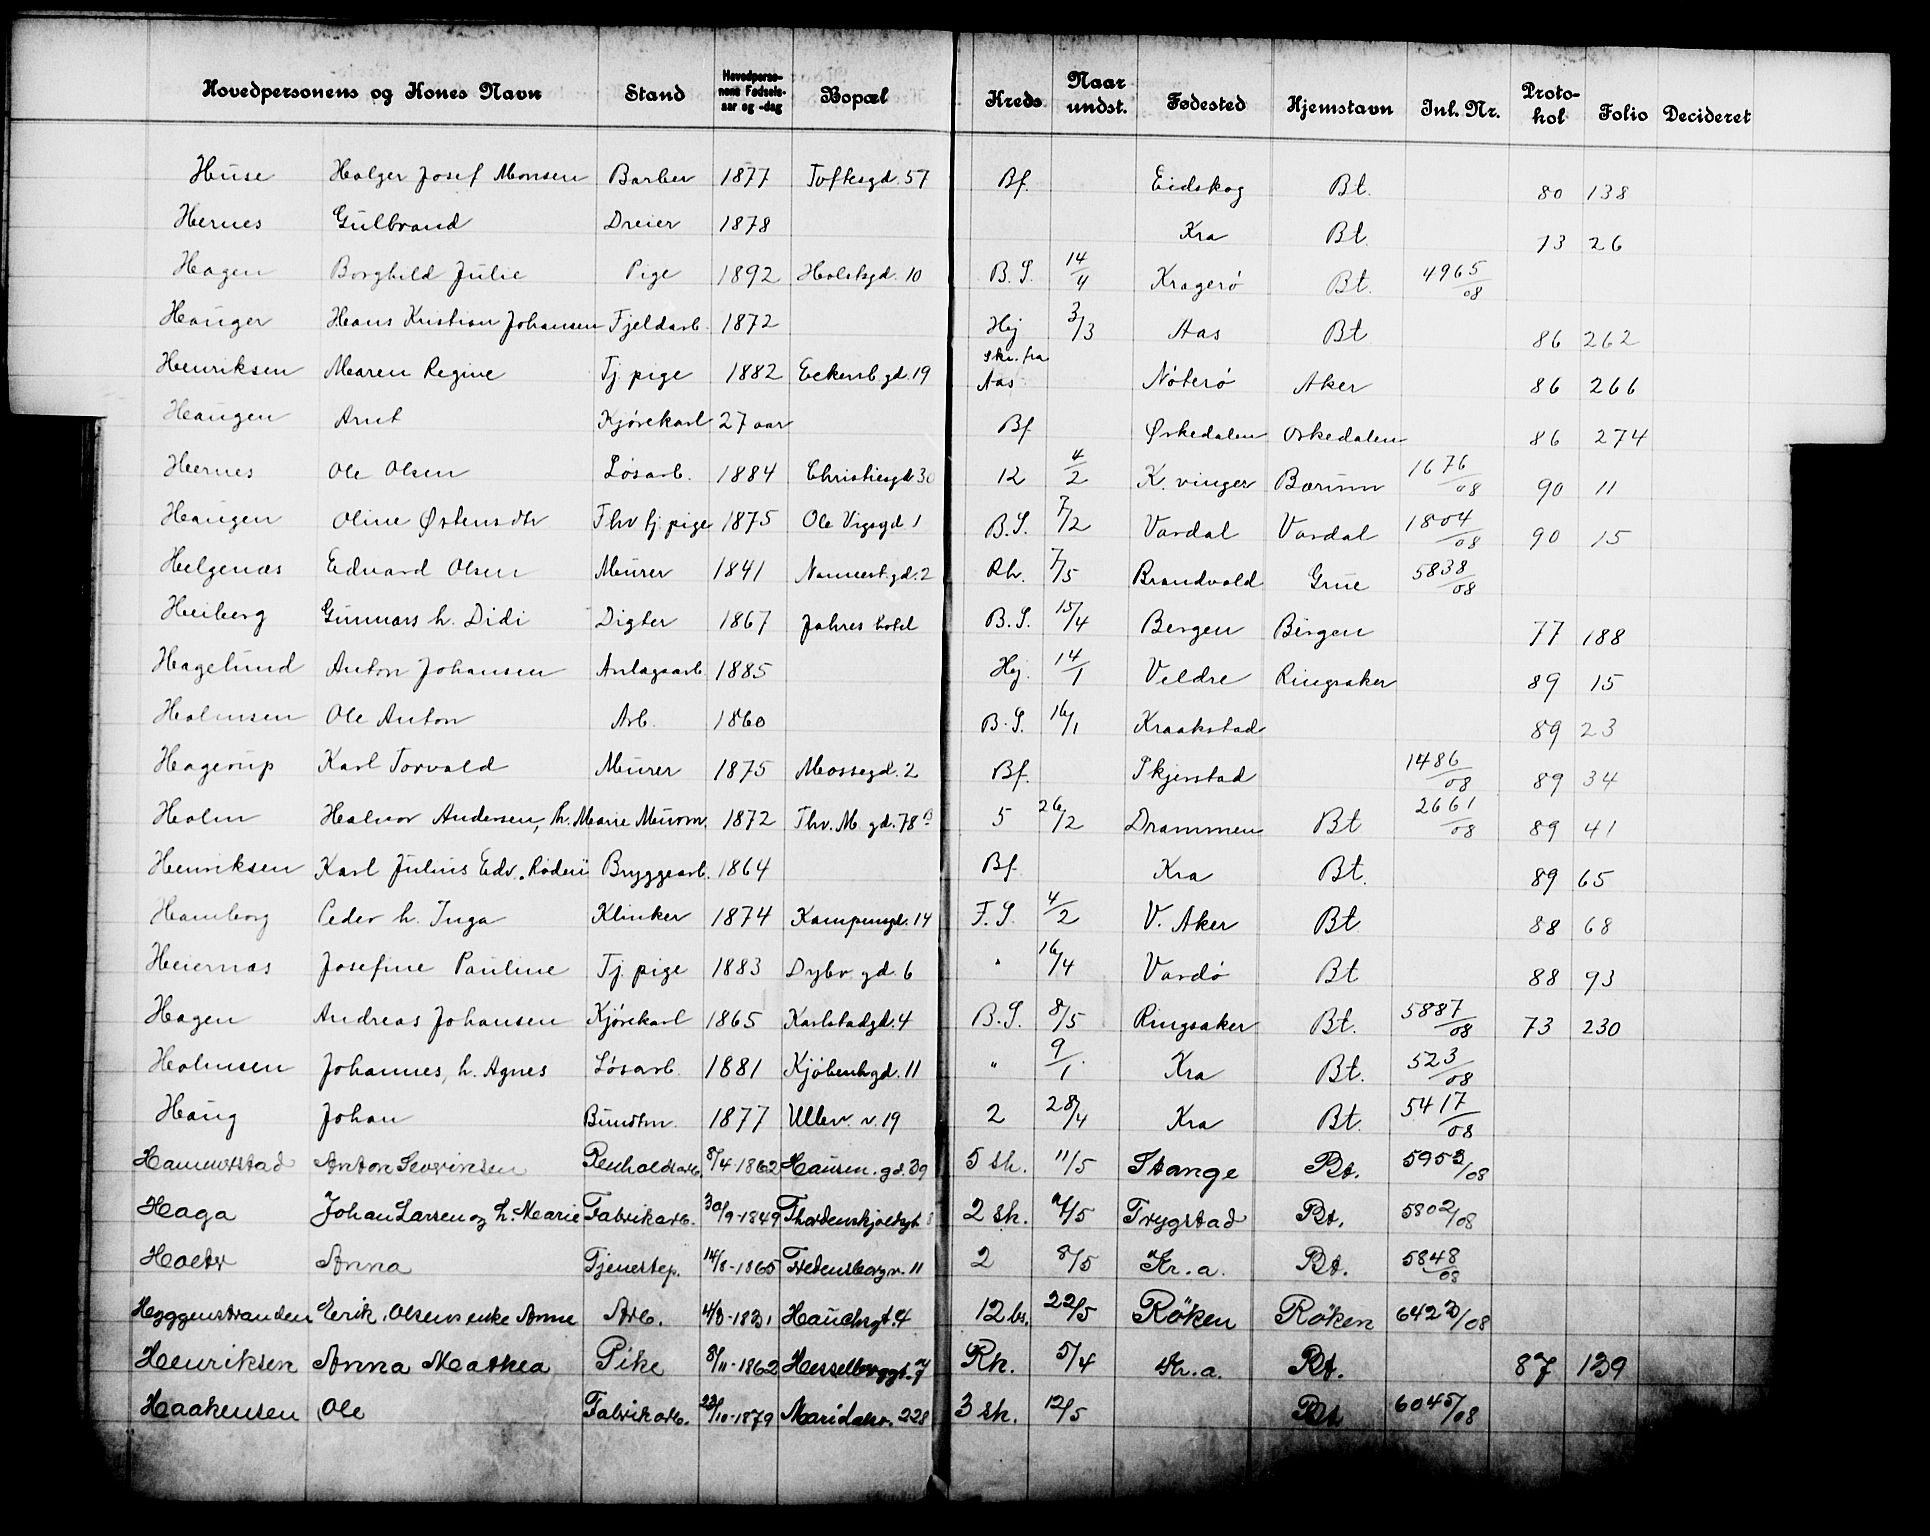 Hovedpersonens og Kones Navn Stand Hovedpersonens Fødselsaar og -dag Bopæl Kreds Naar undst. Fødested Hjemstavn Inl. Nr. Protokol Folio Decideret
Huse Holger Josef Monsen Barber 1877 Toftesgd. 57 Bf. Eidskog Bt. 80 138
Hernes Gulbrand Dreier 1878 Kra Bt. 73 26
Hagen Borghild Julie Pige 1892 Holstsgd. 10 B.S. 14/4 Kragerø Bt. 4965/08
Hauger Hans Kristian Johansen Fjeldarb. 1872 Hej 3/3 Aas Bt. 86 262
Henriksen Maren Regine Tj. pige 1882 Eckersb.gd. 19 Skr. fra Aas Nøterø Aker 86 266
Haugen Arnt Kjørekarl 27 aar Bf Ørkedalen Orkedalen 86 274
Hernes Ole Olsen Løsarb. 1884 Christiesgd. 30 12 4/2 K. vinger Bærum 1676/08 90 11
Haugen Oline Østensdtr Fhv tj. pige 1875 Ole Vigsgd. 1 B.S. 7/2 Vardal Vardal 1804/08 90 15
Helgenæs Edvard Olsen Murer 1841 Nannest.gd. 2 Rh. 7/5 Brandvold Grue 5838/08
Heiberg Gunnars h. Didi Digter 1867 Jahres hotel B.S. 15/4 Bergen Bergen 77 188
Hagelund Anton Johansen Anlagsarb. 1885 Hej. 14/1 Veldre Ringsaker 89 15
Holmsen Ole Anton Arb. 1860 B.S. 16/1 Kraakstad 89 23
Hagerup Karl Torvald Murer 1875 Mossegd. 2 Bf. Skjerstad 1486/08 89 34
Holm Halvor Andersen, h. Marie Murarb. 1872 Thv. M gd. 78 B 5 26/2 Drammen Bt 2661/08 89 41
Henriksen Karl Julius Edv. Bryggearb. 1864 Bf. Kra Bt. 89 65
Hamborg Peder h. Inga Klinker 1874 Kampensgd. 14 F.S. 4/2 V. Aker Bt. 88 68
Heiernæs Josefine Pauline Tj. pige 1883 Dybv. gd. 6 " 16/4 Vardø Bt 88 93
Hagen Andreas Johansen Kjørekarl 1865 Karlstadgd. 4 B.S. 8/5 Ringsaker Bt. 5887/08 73 230
Holmsen Johannes, h. Agnes Løsarb. 1881 Kjøbenhgd. 11 " 9/1 Kra Bt. 523/08
Haug Johan Buntm. 1877 Ullev. v. 19 2 28/4 Kra Bt. 5417/08
Hammerstad Anton Severinsen Renholdsarb. 8/4-1862 Hausm. gd. 39 5 sk. 11/5 Stange Bt. 5953/08
Haga Johan Larsen og h. Marie Fabrikarb. 30/9-1849 Thordenskjoldsgt 8 2 sk. 7/5 Trygstad Bt. 5802/08
Holter Anna Tjenestep. 14/8-1865 Fredensborgv. 11 2 8/5 Kr.a. Bt. 5848/08
Heggenstranden Eerik, Olsens enke Anne Arb. Hauchsgt. 4 12 bs. 22/5 Röken Röken 6422/08
Henriksen Anna Mathea Pike 8/11-1862 Hesselbergsgt. 7 Rh. 5/4 Kr.a. Bt. 87 139
Haakensen Ole Fabrikarb. 22/10-1879 Maridalsv. 228 3 sk. 12/5 Bt 6045/08